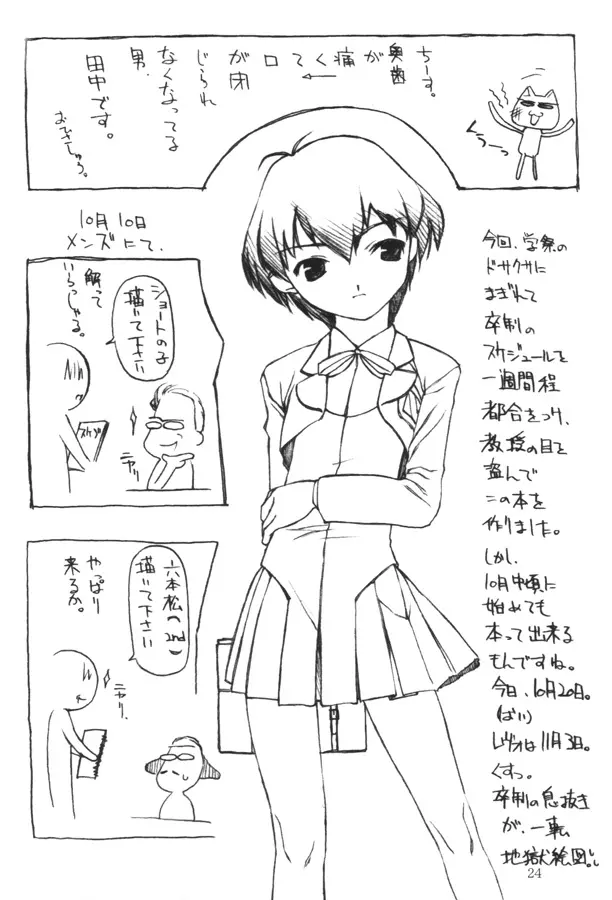 ちーす。
奥歯
が
痛
く
て
口
が閉
じられ
なくなってる
男、
田中です。
おひさしゅう。
くぅーっ
10月10日
メンズにて、
ショートの子
描いて下さい
解って
いらっしゃる。
スケブ
ニヤリ
六本松(2nd)
描いて下さい
やっぱり
来るか。
ニヤリ
今回、学祭の
ドサクサに
まぎれて
卒制の
スケジュールを
一週間程
都合をつけ、
教授の目を
盗んで
この本を
作りました。
しかし、
10月中頃に
始めても
本って出来る
もんですね。
今日、10月20日。
(ばい)
レヴォは11月3日。
くすっ。
卒制の息抜き
が、一転
地獄絵図。
24